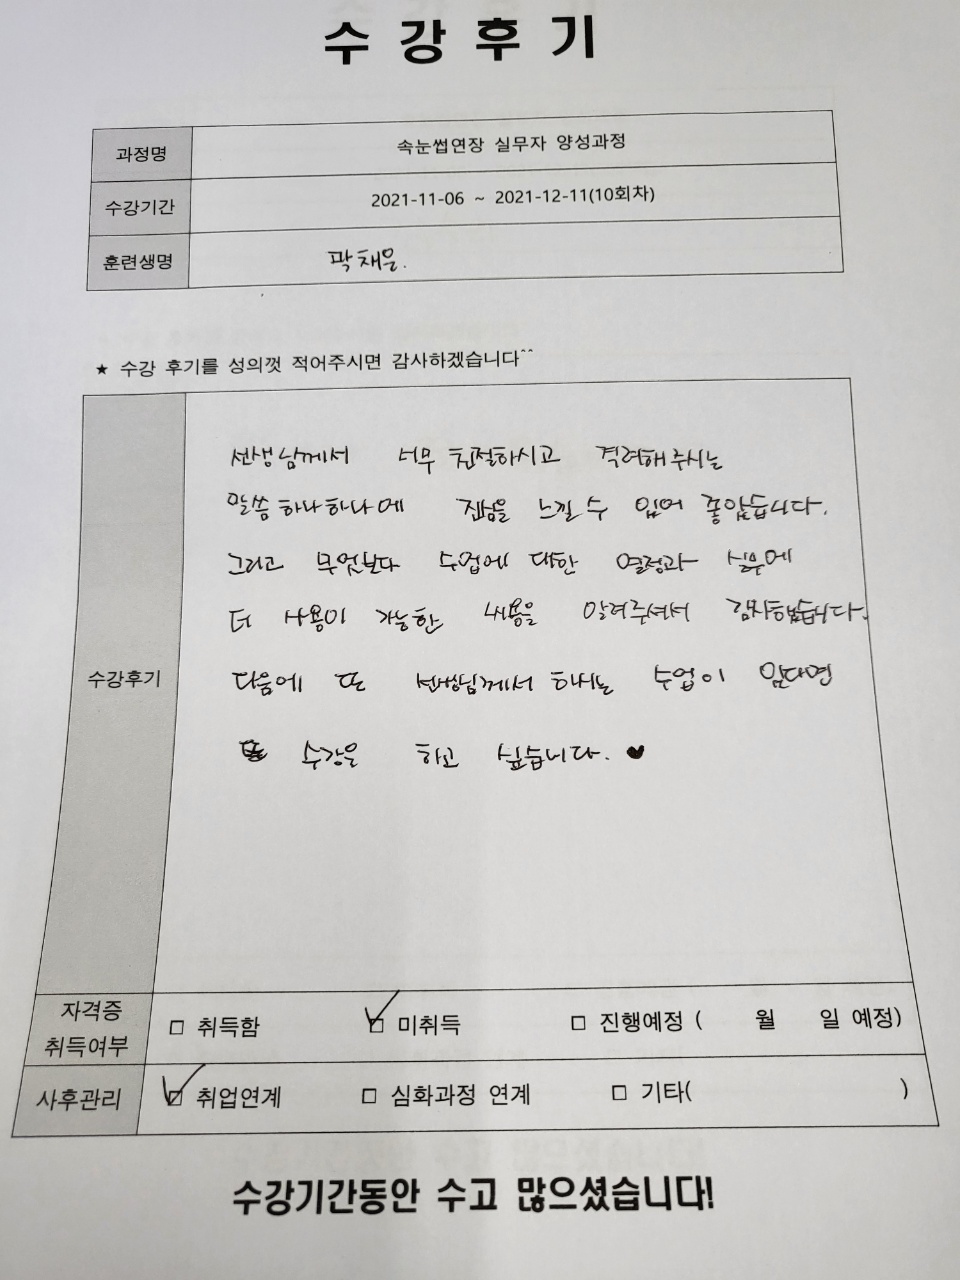 수강후기
과정명 속눈썹연장 실무자 양성과정
수강기간 2021-11-06 ~ 2021-12-11(10회차)
훈련생명 곽채은.
★ 수강 후기를 성의껏 적어주시면 감사하겠습니다^^
선생님께서 너무 친절하시고 격려해주시는
말씀 하나하나에 진심을 느낄 수 있어 좋았습니다.
그리고 무엇보다 수업에 대한 열정과 실무에
더 사용이 가능한 내용을 알려주셔서 감사했습니다.
수강후기
다음에 또 선생님께서 하시는 수업이 있다면
수강을 하고 싶습니다. ♥
자격증
취득여부
□ 취득함 ☑ 미취득 □ 진행예정 ( 월 일 예정)
사후관리 ☑ 취업연계 □ 심화과정 연계 □ 기타( )
수강기간동안 수고 많으셨습니다!